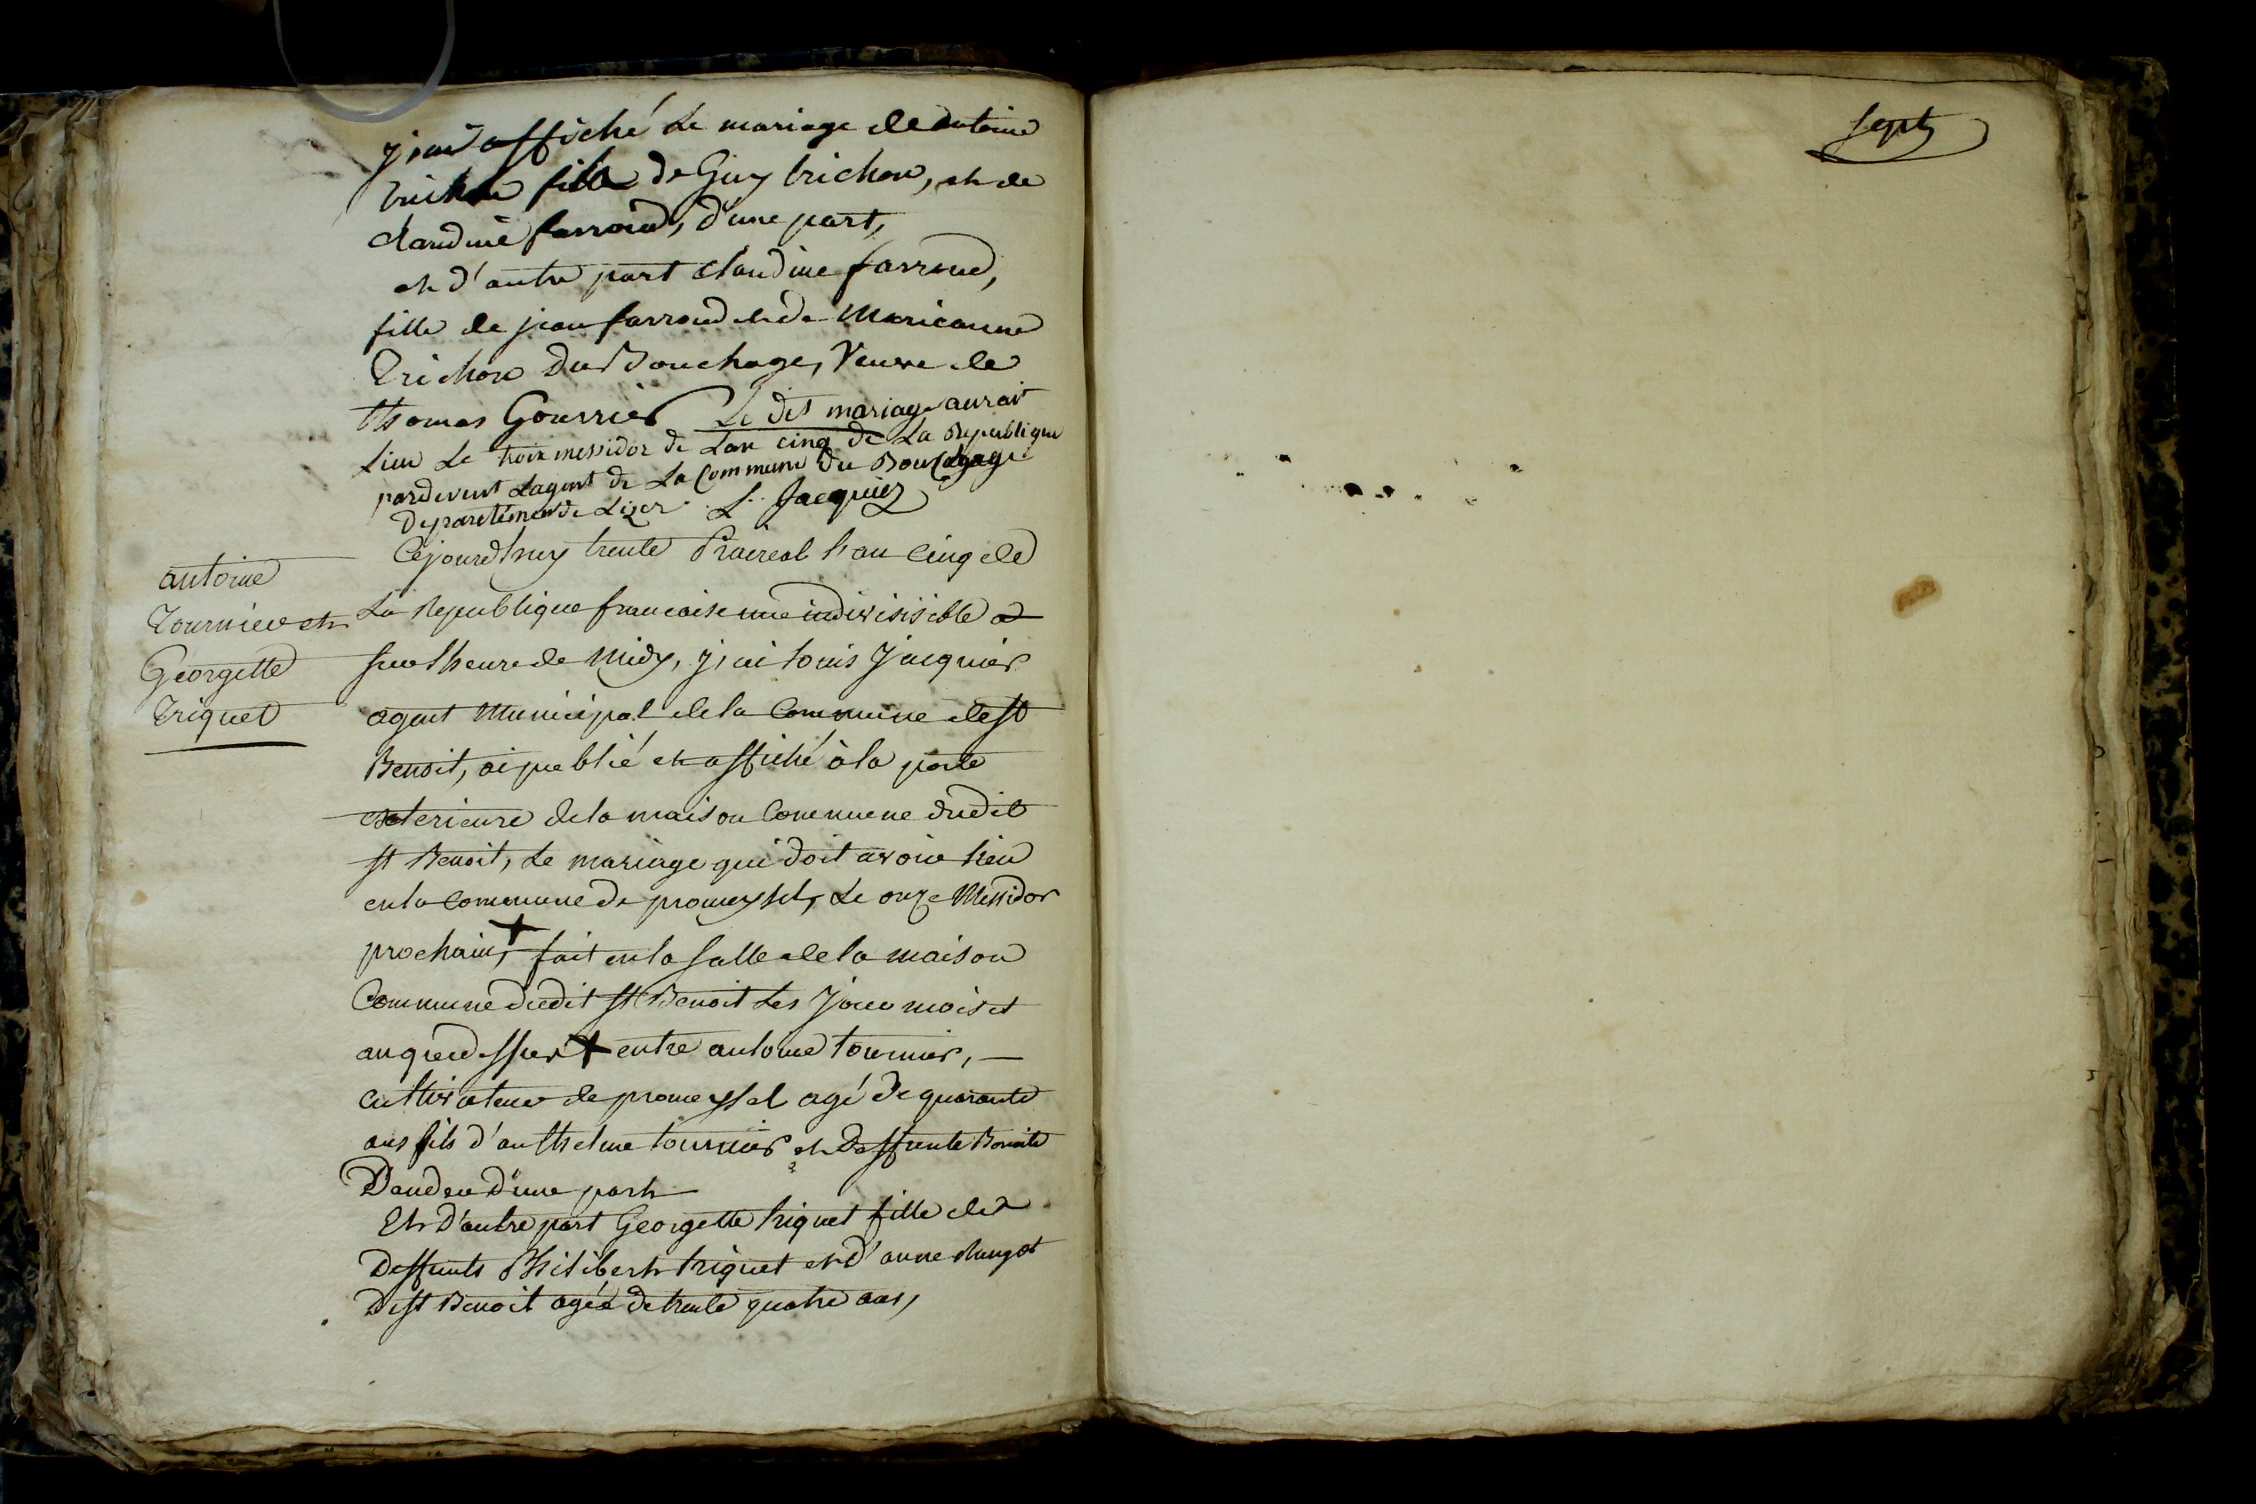 j'ai affiché Le mariage de antoine
trichon fille de Guy trichon, et de
claudine farroud, d'une part,
et d'autre part Claudine farroud,
fille de jean farroud et de Marieanne
Trichon Du Bouchage, Veuve de
thomas Gourrier Le dit mariage aurait
Lieu Le troix messidor de Lan cinq de La Republique
pardevent Lagent de La Commune du Bouchage
Departement de Lizer L. Jacquier
Cejourdhuy trente Praireal l'an Cinq de
La Republique francaise une indivisisible a
sur l'heure de Midy, j'ai louis Jacquier
agent Municipal de la Commune de St
Benoit, ai publié et affiché à la porte
exterieure de la maison Commune dudit
St Benoit, Le mariage qui doit avoir lieu
en la Commune de promeysel, Le onze Messidor
prochain, + fait en la salle de la maison
Commune dudit St Benoit Les Jour mois et
an que dessus + entre antoine tournier, —
cultivateur de promeysel agé de quarante
ans fils d'anthelme tournier et deffunte Benoite
Dandeu d'une part
Et D'autre part Georgette triquet fille de
Deffunts Philibert triquet et d'anne
De St Benoit agée de trente quatre ans,
antoine
Tournier et
Georgette
Triquet
Sept